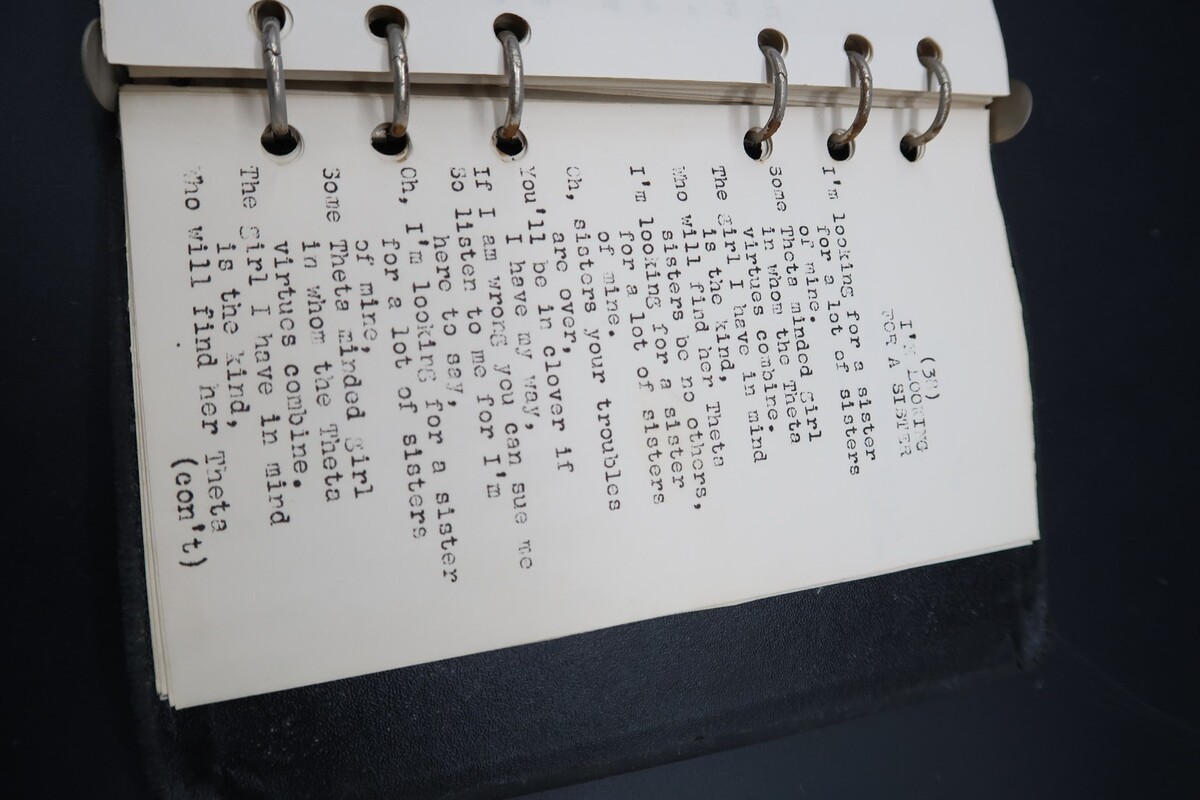 I'M LOOKING
FOR A SISTER
I'm looking for a sister
for a lot of sisters
of mine.
Some Theta minded girl
in whom the Theta
virtues combine.
The girl I have in mind
is the kind,
Who will find her Theta
sisters be no others,
I'm looking for a sister
for a lot of sisters
of mine.
Oh, sisters your troubles
are over,
You'll be in clover if
I have my way,
If I am wrong you can sue me
So listen to me for I'm
here to say,
Oh, I'm looking for a sister
for a lot of sisters
of mine,
Some Theta minded girl
in whom the Theta
virtues combine.
The girl I have in mind
is the kind,
Who will find her Theta
(con't)